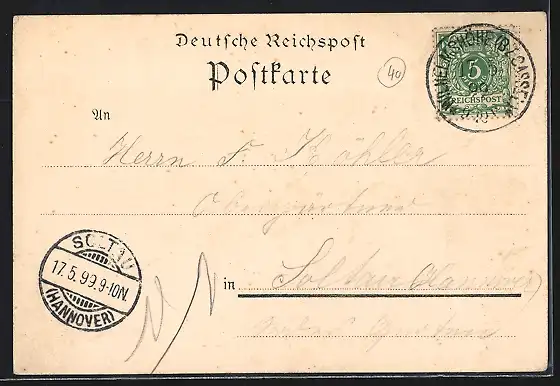 Deutsche Reichspost
Postkarte
40
WILHELMSHÖHE (BZ. CASSEL)
5
REICHSPOST
An
Herrn F. Köhler
Obergärtner
in Soltau (Hannover)
SOLTAU
17.5.99.9-10N.
(HANNOVER)